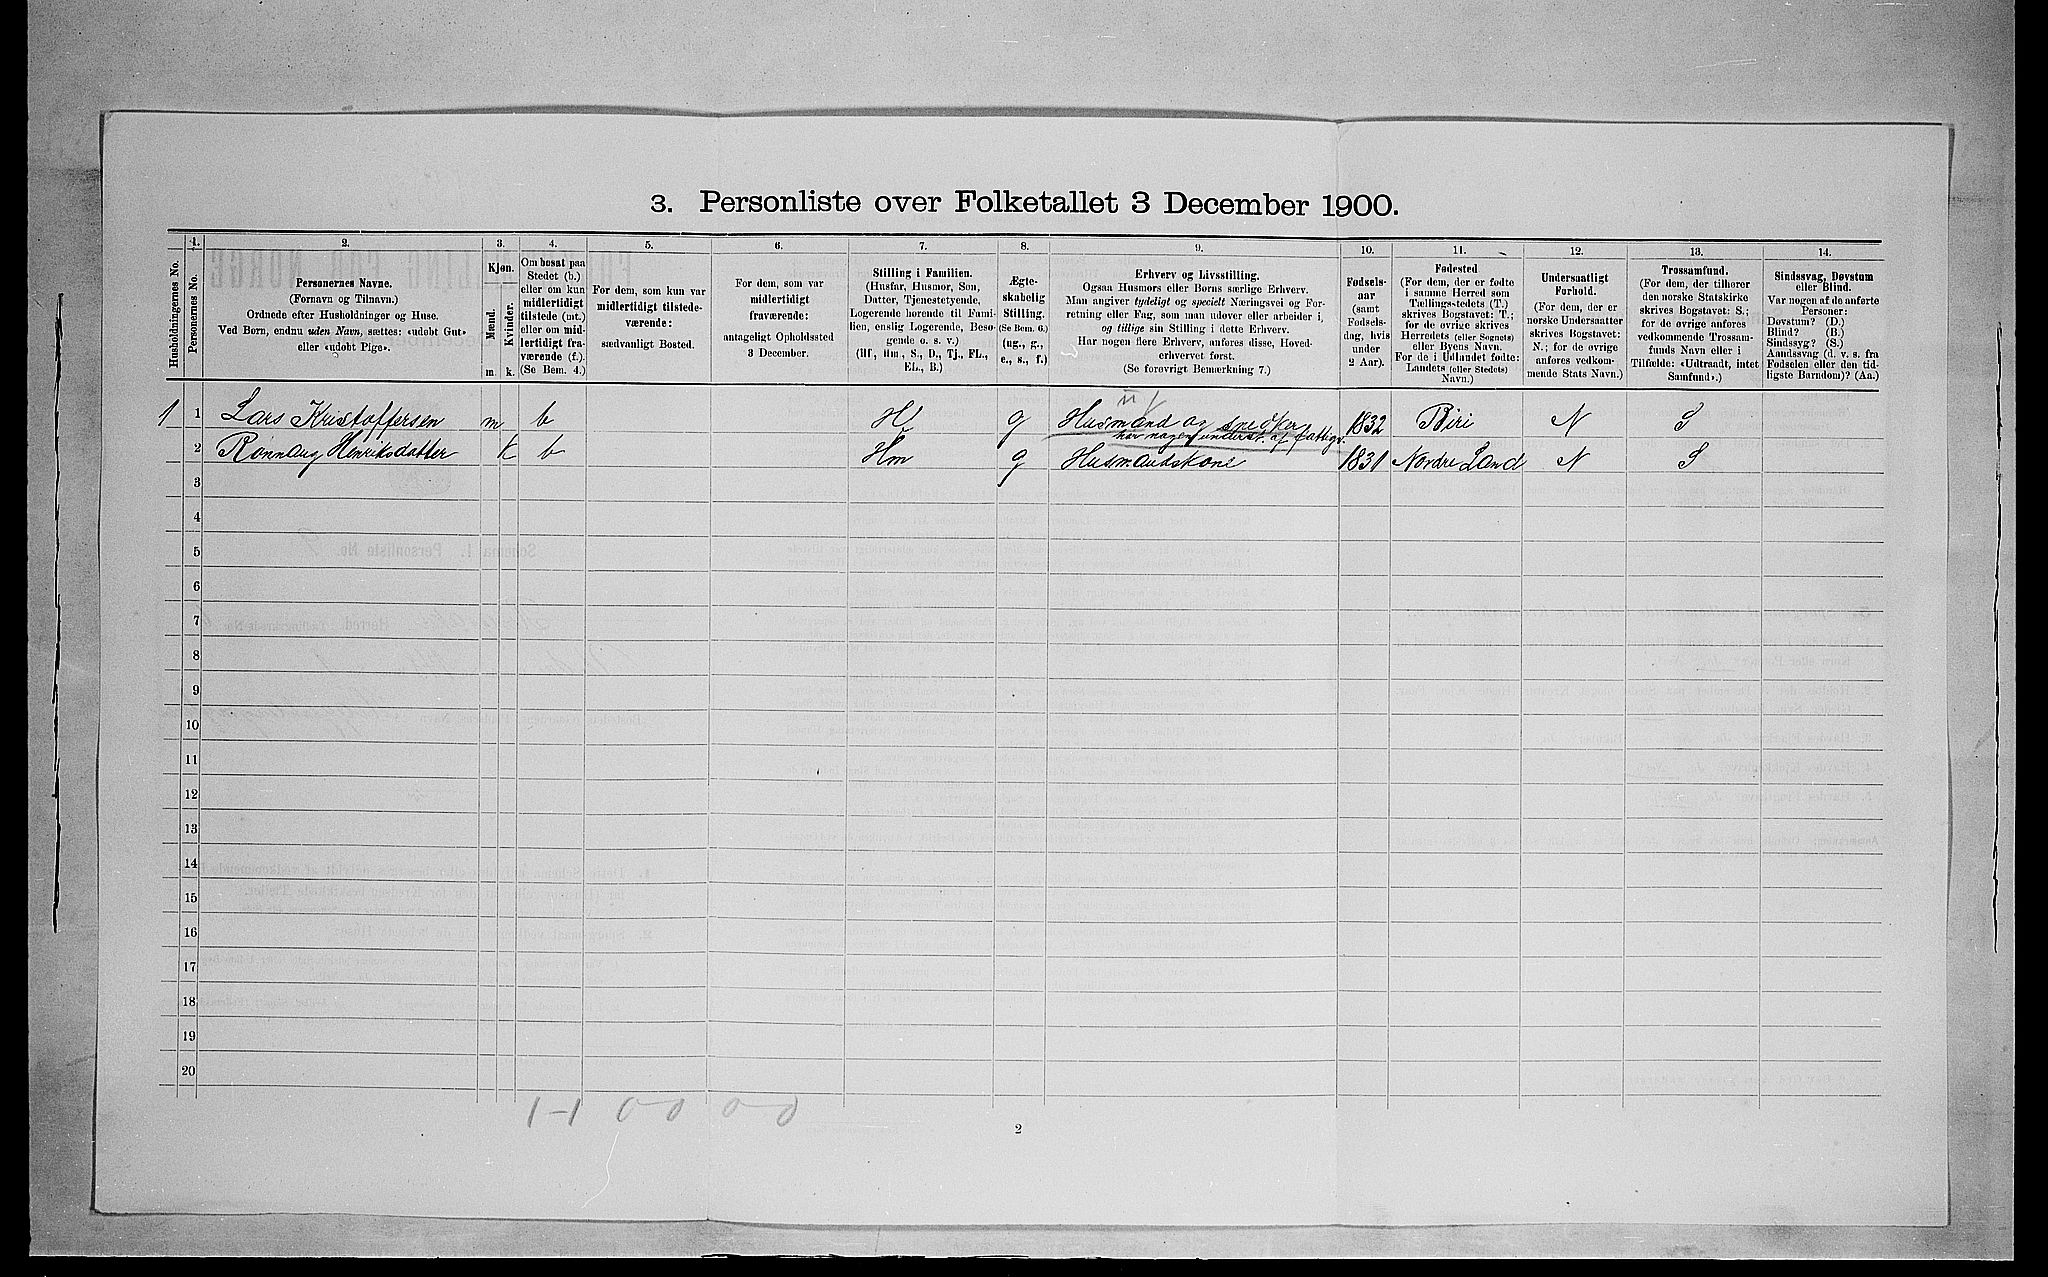 3. Personliste over Folketallet 3 December 1900.
Husholdningernes No.
1.
Personernes No.
2.
Personernes Navne.
(Fornavn og Tilnavn.)
Ordnede efter Husholdninger og Huse.
Ved Børn, endnu uden Navn, sættes: «udøbt Gut»
eller «udøbt Pige».
3.
Kjøn.
Mænd.
Kvinder.
m. k.
4.
Om bosat paa
Stedet (b.)
eller om kun
midlertidigt
tilstede (mt.)
eller om mid-
lertidigt fra-
værende (f.).
(Se Bem. 4.)
5.
For dem, som kun var
midlertidigt tilstede-
værende:
sædvanligt Bosted.
6.
For dem, som var
midlertidigt
fraværende:
antageligt Opholdssted
3 December.
7.
Stilling i Familien.
(Husfar, Husmor, Søn,
Datter, Tjenestetyende,
Logerende hørende til Fami-
lien, enslig Logerende, Besø-
gende o. s. v.)
(Hf., Hm., S., D., Tj., FL.,
EL., B.)
8.
Ægte-
skabelig
Stilling.
(Se Bem. 6.)
(ug., g.,
e., s., f.)
9.
Erhverv og Livsstilling.
Ogsaa Husmors eller Børns særlige Erhverv.
Man angiver tydeligt og specielt Næringsvei og For-
retning eller Fag, som man udøver eller arbeider i,
og tillige sin Stilling i dette Erhverv.
Har nogen flere Erhverv, anføres disse, Hoved-
erhvervet først.
(Se forøvrigt Bemærkning 7.)
10.
Fødsels-
aar
(samt
Fødsels-
dag, hvis
under
2 Aar).
11.
Fødested
(For dem, der er fødte
i samme Herred som
Tællingsstedets (T.)
skrives Bogstavet: T.;
for de øvrige skrives
Herredets (eller Sognets)
eller Byens Navn.
For de i Udlandet fødte:
Landets (eller Stedets)
Navn.)
12.
Undersaatligt
Forhold.
(For dem, der er
norske Undersaatter
skrives Bogstavet:
N.; for de øvrige
anføres vedkom-
mende Stats Navn.)
13.
Trossamfund.
(For dem, der tilhører
den norske Statskirke
skrives Bogstavet: S.;
for de øvrige anføres
vedkommende Trossam-
funds Navn eller i
Tilfælde: «Udtraadt, intet
Samfund».)
14.
Sindssvag, Døvstum
eller Blind.
Var nogen af de anførte
Personer:
Døvstum? (D.)
Blind? (B.)
Sindssyg? (S.)
Aandssvag (d. v. s. fra
Fødselen eller den tid-
ligste Barndom)? (Aa.)
1 1 Lars Kristoffersen m b H g Husmand og snedker 1832 Biri N S
har nogen underst. af fattigv.
2 Rønnaug Henriksdatter k b Hm g Husmandskone 1831 Nordre Land N S
3
4
5
6
7
8
9
10
11
12
13
14
15
16
17
18
19
20
1-1 0 0 0 0
2